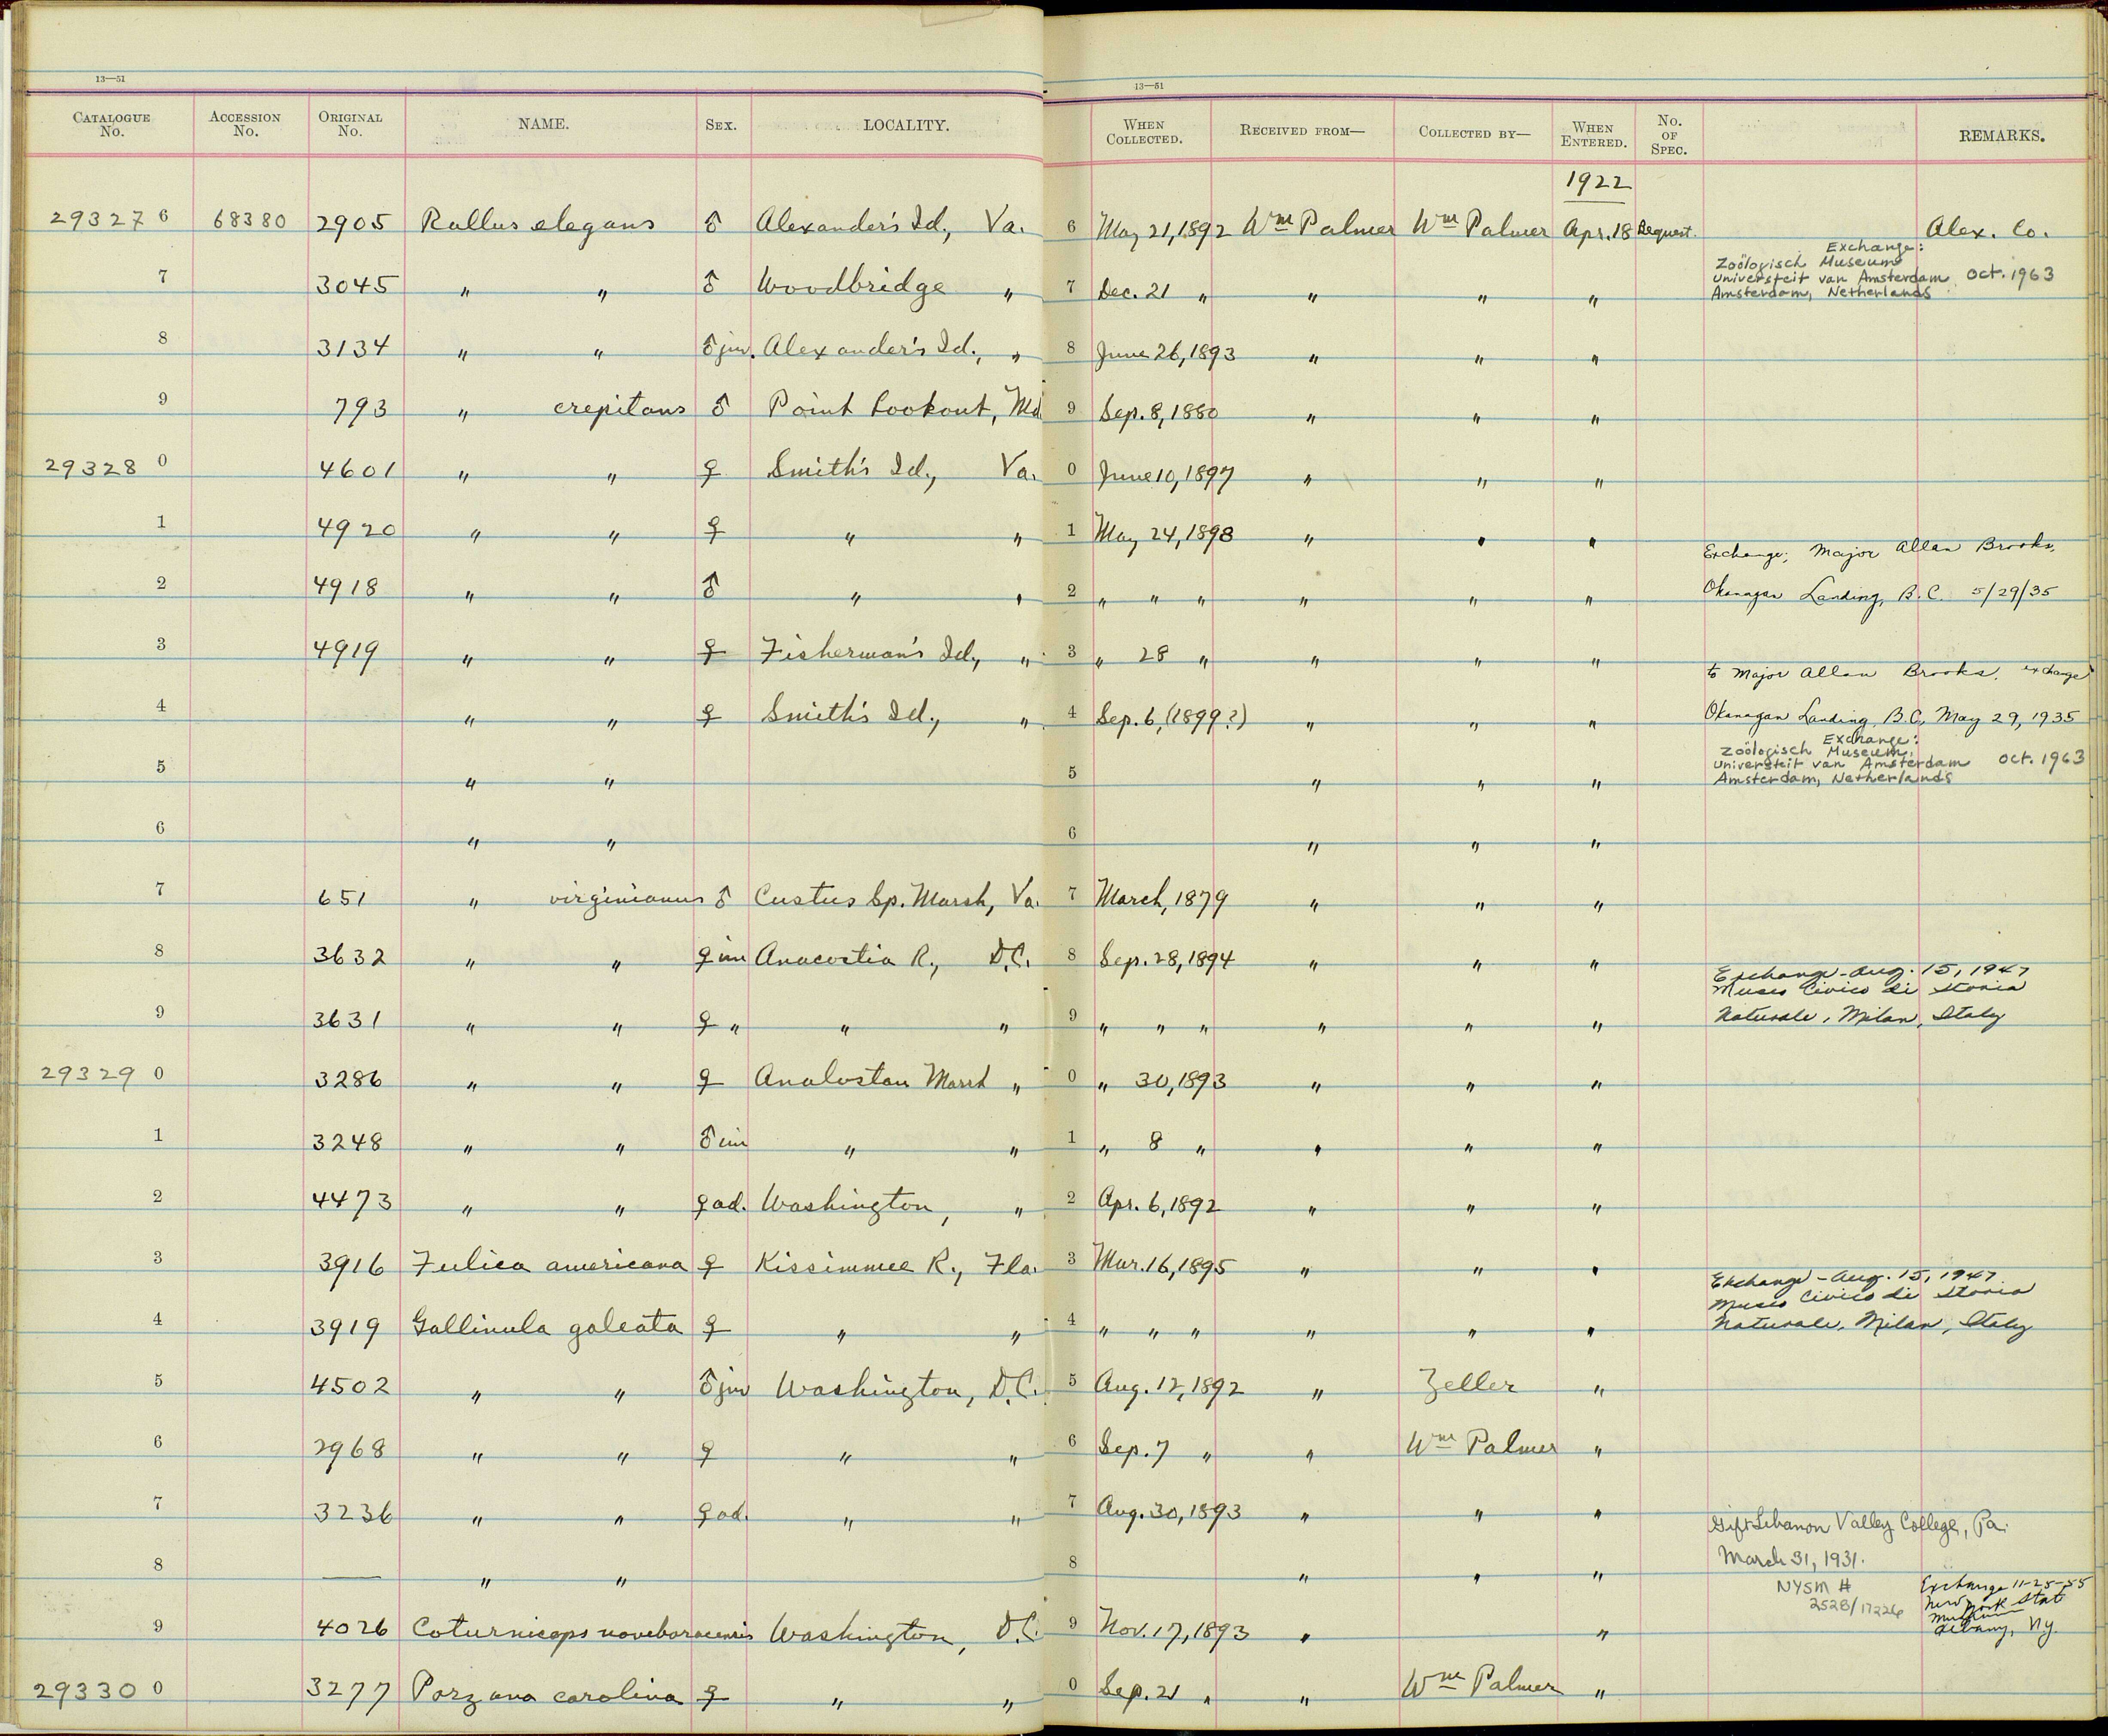 13—51
13—51
CATALOGUE No. ACCESSION No. ORIGINAL No. NAME. SEX. LOCALITY. WHEN COLLECTED. RECEIVED FROM— COLLECTED BY— WHEN ENTERED. No. OF SPEC. REMARKS.
1922
29327 6 68380 2905 Rallus elegans ♂ Alexander's Id., Va. 6 May 21, 1892 Wm Palmer Wm Palmer Apr. 18 Bequest. Alex. Co.
Exchange:
Zoölogisch Museum
Universiteit van Amsterdam Oct. 1963
7 3045 " " ♂ Woodbridge " 7 Dec. 21 " " " " Amsterdam, Netherlands
8 3134 " " ♂ juv. Alexander's Id., " 8 June 26, 1893 " " "
9 793 " crepitans ♂ Point Lookout, Md 9 Sep. 8, 1880 " " "
29328 0 4601 " " ♀ Smith's Id., Va. 0 June 10, 1897 " " "
1 4920 " " ♀ " " 1 May 24, 1898 " " "
Exchange; Major Allan Brooks,
2 4918 " " ♂ " " 2 " " " " " " Okanagan Landing, B.C. 5/29/35
3 4919 " " ♀ Fisherman's Id., " 3 " 28 " " " "
to Major Allan Brooks, exchange
4 " " ♀ Smith's Id., " 4 Sep. 6, (1899?) " " " Okanagan Landing, B.C, May 29, 1935
Exchange:
Zoölogisch Museum,
Universteit van Amsterdam Oct. 1963
5 " " 5 " " " Amsterdam, Netherlands
6 " " 6 " " "
7 651 " virginianus ♂ Custus Sp. Marsh, Va. 7 March, 1879 " " "
8 3632 " " ♀ im Anacostia R., D.C. 8 Sep. 28, 1894 " " "
Exchange - Aug. 15, 1947
Museo Civico di Storia
9 3631 " " ♀ " " " 9 " " " " " " Naturale, Milan, Italy
29329 0 3286 " " ♀ Analostan Marsh " 0 " 30, 1893 " " "
1 3248 " " ♂ im " " 1 " 8 " " " "
2 4473 " " ♀ ad. Washington, " 2 Apr. 6, 1892 " " "
3 3916 Fulica americana ♀ Kissimmee R., Fla. 3 Mar. 16, 1895 " " "
Exchange - Aug. 15, 1947
Museo Civico di Storia
4 3919 Gallinula galeata ♀ " " 4 " " " " " " Naturale, Milan, Italy
5 4502 " " ♂ juv Washington, D.C. 5 Aug. 12, 1892 " Zeller "
6 2968 " " ♀ " " 6 Sep. 7 " " Wm Palmer "
7 3236 " " ♀ ad. " " 7 Aug. 30, 1893 " " "
Gift Lebanon Valley College, Pa.
8 — " " 8 " " " March 31, 1931.
NYSM # 2528/17226
Exchange 11-25-55
New York Stat
Museum
Albany, Ny.
9 4026 Coturnicops noveboracensis Washington, D.C. 9 Nov. 17, 1893 " "
29330 0 3277 Porzana carolina ♀ " " 0 Sep. 21 " " Wm Palmer "